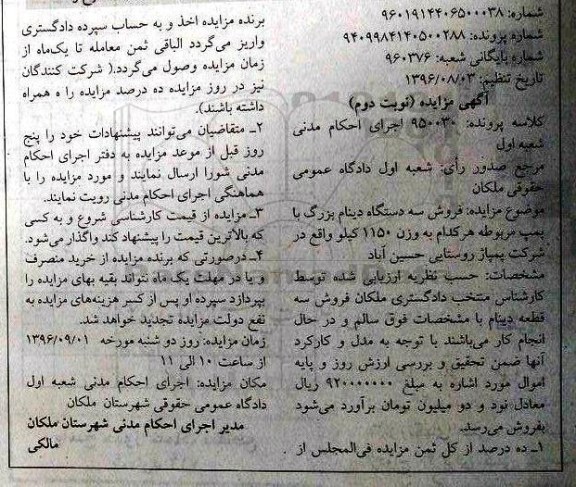 شماره: ۹۶۰۱۹۱۴۴۰۶۵۰۰۰۳۸
شماره پرونده: ۹۴۰۹۹۸۴۱۴۰۵۰۰۲۸۸
شماره بایگانی شعبه: ۹۶۰۳۷۶
تاریخ تنظیم: ۱۳۹۶/۰۸/۰۳
آگهی مزایده (نوبت دوم)
کلاسه پرونده: ۹۵۰۰۳۰ اجرای احکام مدنی
شعبه اول
مرجع صدور رأی: شعبه اول دادگاه عمومی
حقوقی ملکان
موضوع مزایده: فروش سه دستگاه دینام بزرگ با
پمپ مربوطه هر کدام به وزن ۱۱۵۰ کیلو واقع در
شرکت پمپاژ روستایی حسین آباد
مشخصات: حسب نظریه ارزیابی شده توسط
کارشناس منتخب دادگستری ملکان فروش سه
قطعه دینام با مشخصات فوق سالم و در حال
انجام کار می‌باشند با توجه به مدل و کارکرد
آنها ضمن تحقیق و بررسی ارزش روز و پایه
اموال مورد اشاره به مبلغ ۹۲۰۰۰۰۰۰۰ ریال
معادل نود و دو میلیون تومان برآورد می‌شود
بفروش می‌رسد.
۱ـ ده درصد از کل ثمن مزایده فی‌المجلس از
برنده مزایده اخذ و به حساب سپرده دادگستری
واریز می‌گردد الباقی ثمن معامله تا یک‌ماه از
زمان مزایده وصول می‌گردد.( شرکت کنندگان
نیز در روز مزایده ده درصد مزایده را ه همراه
داشته باشند).
۲ـ متقاضیان می‌توانند پیشنهادات خود را پنج
روز قبل از موعد مزایده به دفتر اجرای احکام
مدنی شورا ارسال نمایند و مورد مزایده را با
هماهنگی اجرای احکام مدنی رویت نمایند.
۳ـ مزایده از قیمت کارشناسی شروع و به کسی
که بالاترین قیمت را پیشنهاد کند واگذار می‌شود.
۴ـ درصورتی که برنده مزایده از خرید منصرف
و یا در مهلت یک ماه نتواند بقیه بهای مزایده را
بپردازد سپرده او پس از کسر هزینه‌های مزایده به
نفع دولت مزایده تجدید خواهد شد.
زمان مزایده: روز دو شنبه مورخه ۱۳۹۶/۰۹/۰۱
از ساعت ۱۰ الی ۱۱
مکان مزایده: اجرای احکام مدنی شعبه اول
دادگاه عمومی حقوقی شهرستان ملکان
مدیر اجرای احکام مدنی شهرستان ملکان
مالکی